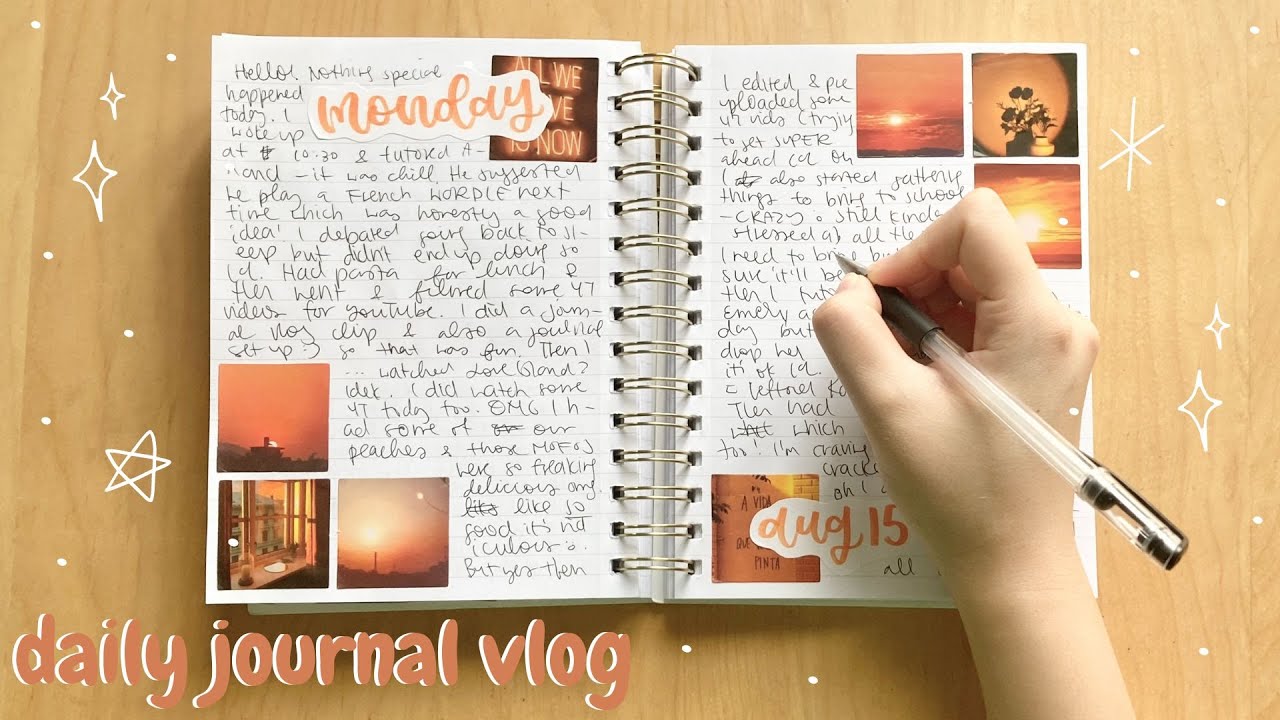 Hello! Nothing special
happened
monday
today. I
woke up
at 10:30 & tutored A-
land – it was chill. He suggested
we play a French WORDLE next
time which was honestly a good
idea! I debated going back to sl-
eep but didn't end up doing so
lol. Had pasta for lunch &
then went & filmed some YT
videos for YouTube. I did a journ-
al vlog clip & also a journal
set up so that was fun. Then I
... watched Love Island?
idek. I did watch some
YT today too. OMG I h-
ad some of our
peaches & those MOFOS
were so freaking
delicious omg.
like so
good it's rid
iculous
But yes then
ALL WE
HAVE
IS NOW
I edited & pre
uploaded some
vids (trying
to get SUPER
ahead lol OK
I also started gathering
things to bring to school
– CRAZY. Still kinda
stressed all the
I need to
sure it'll be
then I
day but
drop her
it's ok lol.
leftover
Then had
which
too. I'm craving
oh I
A VIDA
QUE
PINTA
aug 15
all
daily journal vlog